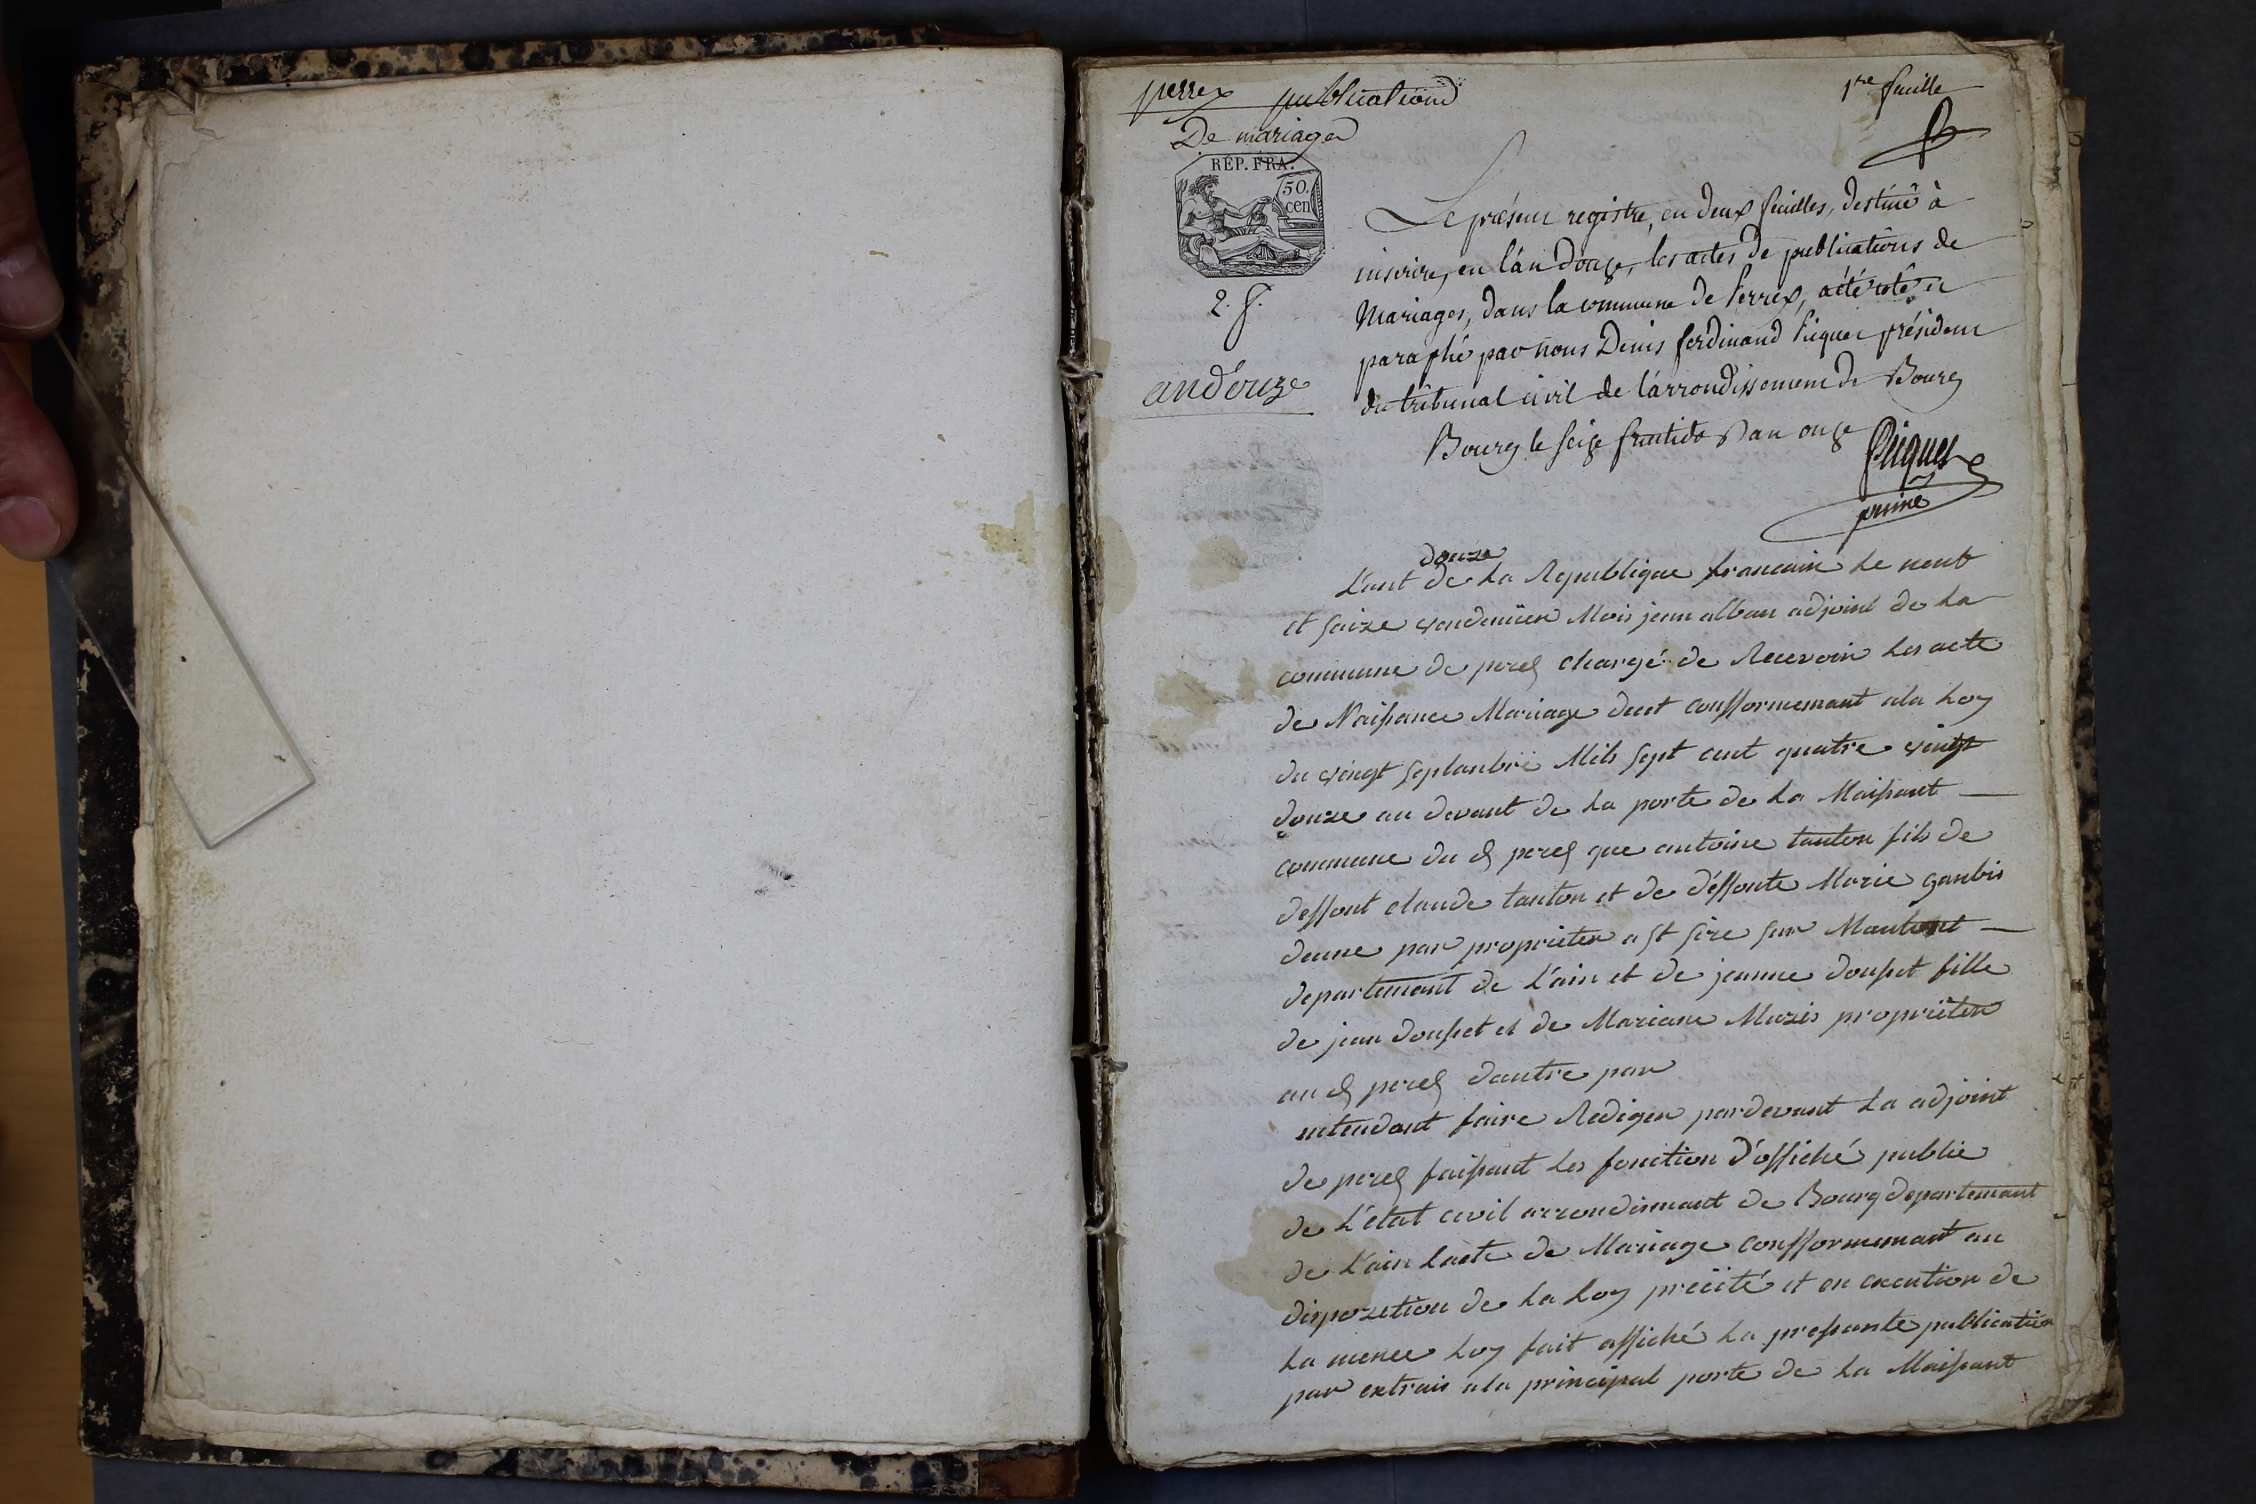 perrex publications
De mariages
1re feuille
RÉP. FRA.
50.
cen
2. f.
an douze
Le présent registre, en deux feuilles, destiné à
inscrire, en l'an douze, les actes de publications de
Mariages, dans la commune de Perrex, a été coté et
paraphé par nous Denis ferdinand Piquet président
du tribunal civil de l'arrondissement de Bourg
Bourg le seize fructidor an onze
Piquet
L'ant douze de La Republique francain Le neuf
et saize vendemiier Mois jean alban adjoint de La
commune de perex chargé de Recevoir Les acte
de Naissance Mariage decet confformemant ala Loy
du vingt septanbre Mils sept cent quatre vingt
douze au devant de La porte de La Maissant
commune du d perex que antoine tanton fils de
deffont claude tanton et de déffonte Marie ganbis
deune par proprieter a st sire sur Manthont
departemant de L'ain et de jeanne dousset fille
de jean dousset et de Mariane Muzis proprieter
au d perex dautre par
entendant faire Rediger pardevant La adjoint
de perex faissant Les fonction d'offiché public
de L'etat civil arrondismant de Bourg departemant
de L'ain Lacte de Mariage confformemant au
dispozetion de La Loy préité et en execution de
La meme Loy fait affiché La pressante publication
par extrais ala principal porte de La Maissant